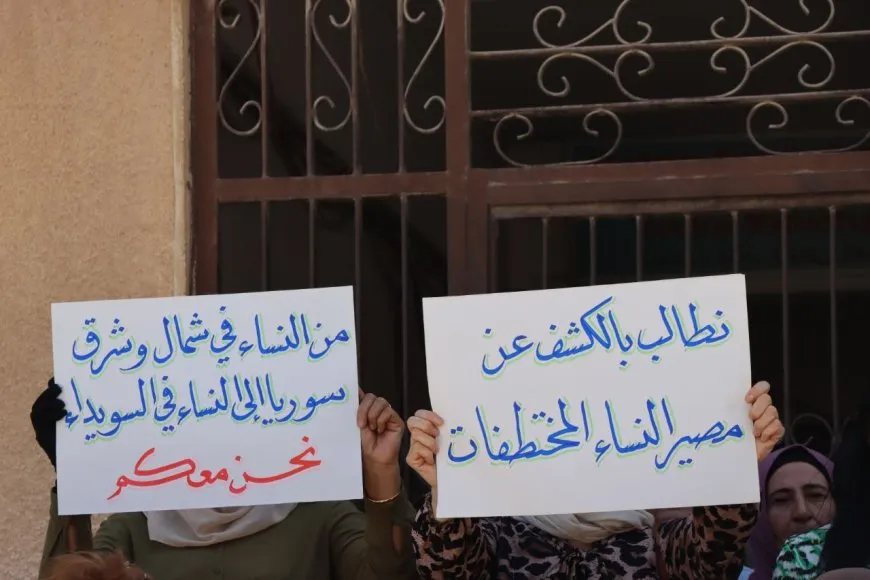 من النساء في شمال وشرق
سوريا إلى النساء في السويداء
نحن معكم
نطالب بالكشف عن
مصير النساء المختطفات